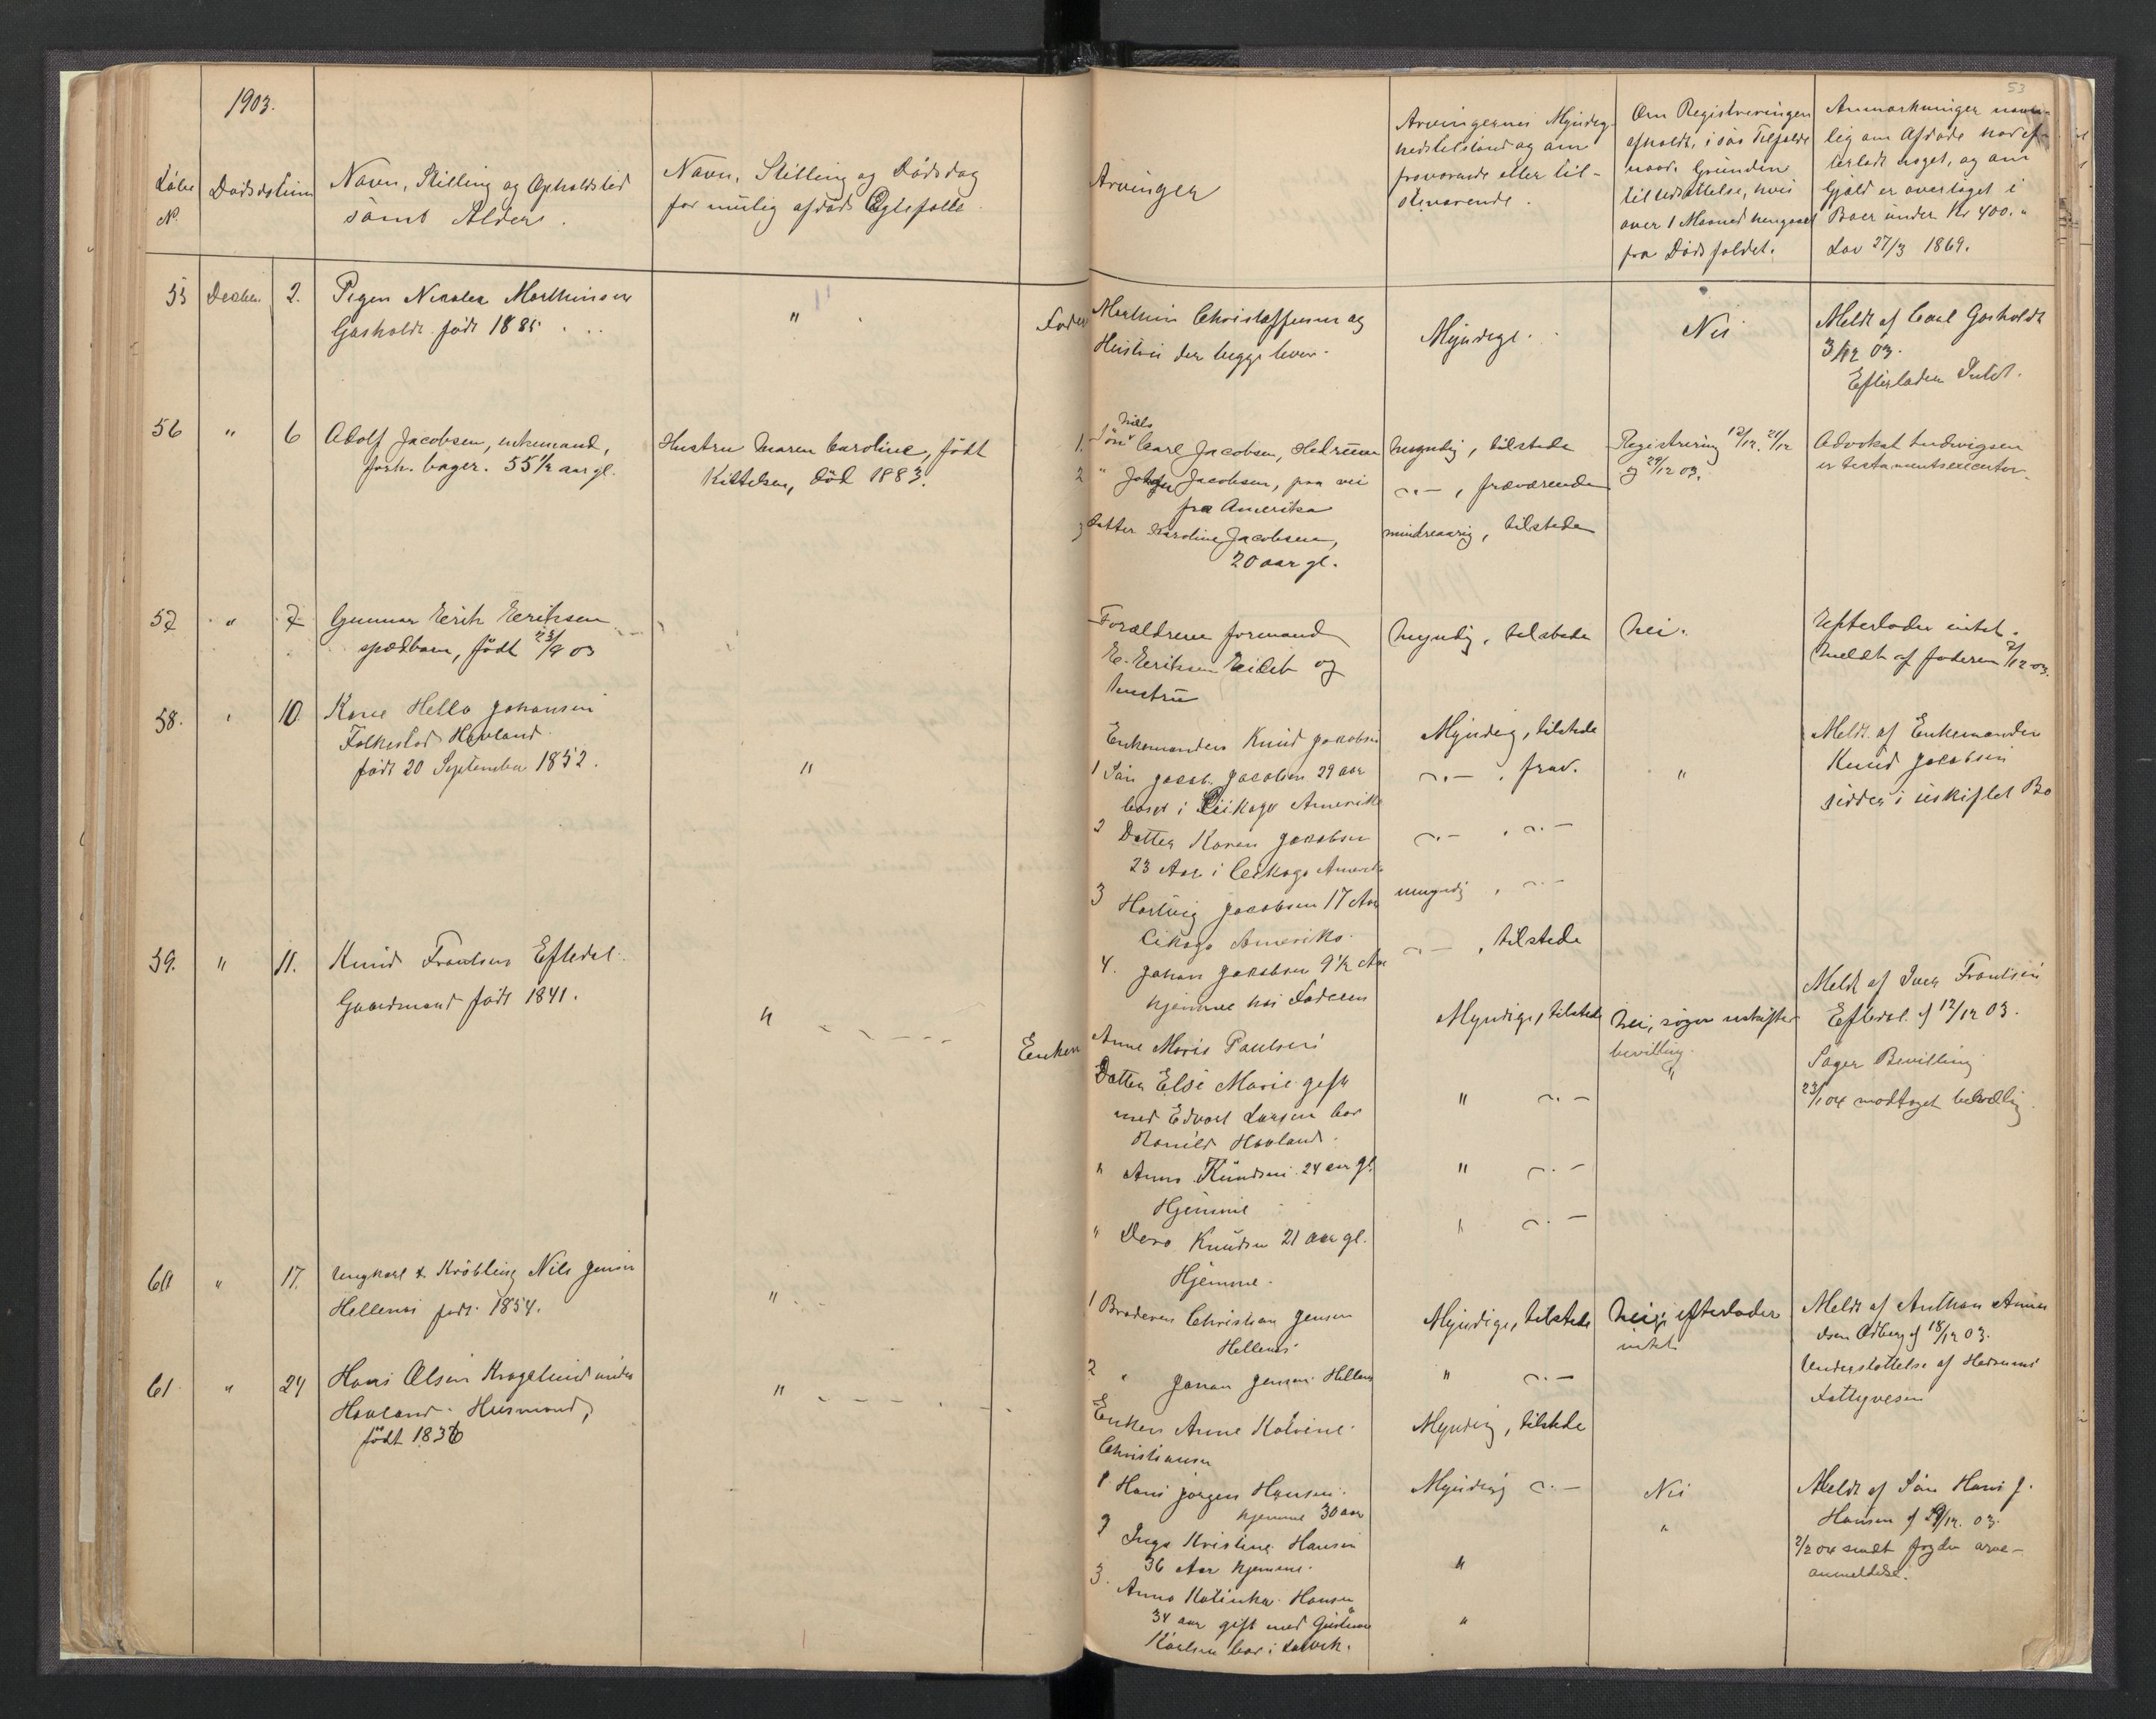 53
1903.
Løbe
No.
Dødsdatum
Navn, Stilling og Opholdsted
samt Alder.
Navn, Stilling og Dødsdag
for mulig afdød Ægtefælle
Arvinger
Arvingernes Myndig-
hedstilstand og om
fraværende eller til-
stæværende.
Om Registreringen
afholdt, i saa Tilfælde
naar, Grunden
til Udsættelse, hvis
over 1 Maaned hengaaet
fra Dødsfaldet.
Anmærkninger navn-
lig om Afdøde har ef-
terladt noget, og om
Gjæld er overtaget i
Boer under Kr 400. "
Lov 27/3 1869.
55 Decbr. 2. Pigen Nicolea Marthinsen
Gasholdt født 1885
"
Fader
Marthin Christoffersen og
Hustru der begge lever.
Myndige.
Nei
Meldt af Carl Gasholdt
3/12 03.
Efterlader Intet.
56 " 6 Adolf Jacobsen, enkemand,
forh. bager. 55 1/2 aar gl.
Hustru Maren Caroline, født
Kittelsen, død 1883.
1. Søn Niels Carl Jacobsen, Hedrum
2 " Johan Jacobsen, paa vei
fra Amerika
3 Datter Karoline Jacobsen,
20 aar gl.
Myndig, tilstede
—"—, fraværende
mindreaarig, tilstede
Registrering 12/12. 21/12
og 29/12 03.
Advokat Ludvigsen
er testamentsexecutor.
57 " 7 Gunnar Erik Eriksen
spædbarn, født 23/9 03
Forældrene formand
E. Eriksen Eidet og
hustru
Myndig, tilstede
Nei.
Efterlader intet.
Meldt af faderen 9/12 03.
58. " 10. Karen Hella Johansen
Falkestad Havland.
født 20 September 1852.
"
Enkemanden Knud Jacobsen
1 Søn Jacob Jacobsen 29 aar
boset i Cikago Amerika
2 Datter Karen Jacobsen
23 Aar i Cikago Amerika
3 Hartvig Jacobsen 17 Aar
Cikago Amerika.
4. Johan Jacobsen 9 1/2 Aar
hjemme hos Faderen
Myndig, tilstede
—"—, frav.
—"—, —"—
umyndig, —"—
—"—, tilstede
"
Meldt af Enkemanden
Knud Jacobsen
sidder i uskiftet Bo
59. " 11. Knud Frantsen Eftedal.
Gaardmand født 1841.
"
Enken
Anne Marie Paulsen
Datter Else Marie gift
med Edvart Larsen bor
Havland.
" Anna Knudsen 24 aar gl.
Hjemme
" Dora Knudsen 21 aar gl.
Hjemme.
Myndige, tilstede
" —"—
" —"—
" —"—
Nei, søger uskifte
bevilling.
"
Meldt af Iver Frantsen
Eftedal d 12/12 03.
Søger Bevilling
23/1 04 modtaget bevilling.
60 " 17. Ungkarl & Krøbling Nils Jensen
Hellenes født 1854.
"
1 Broderen Christian Jensen
Hellenes
2 " Johan Jensen Hellenes
Myndige, tilstede
" —"—
Nei, efterlader
intet.
Meldt af Anthon
Ødberg d 18/12 03.
Understøttelse af Hedrums
Fattigvesen
61 " 24 Hans Olsen Kragelund under
Havland. Husmand,
født 1836
"
Enken Anne Katrine
Christiansen
1 Hans Jørgen Hansen.
hjemme 30 aar
2 Inga Kristine Hansen
36 Aar hjemme.
3. Anna Katinka Hansen
34 aar gift med Gustav
Karlsen bor i Larvik.
Myndig, tilstede
Myndig —"—
"
"
Nei
"
Meldt af Søn Hans J.
Hansen d 29/12. 03.
2/2 04 sendt fogden arve-
anmeldelse.